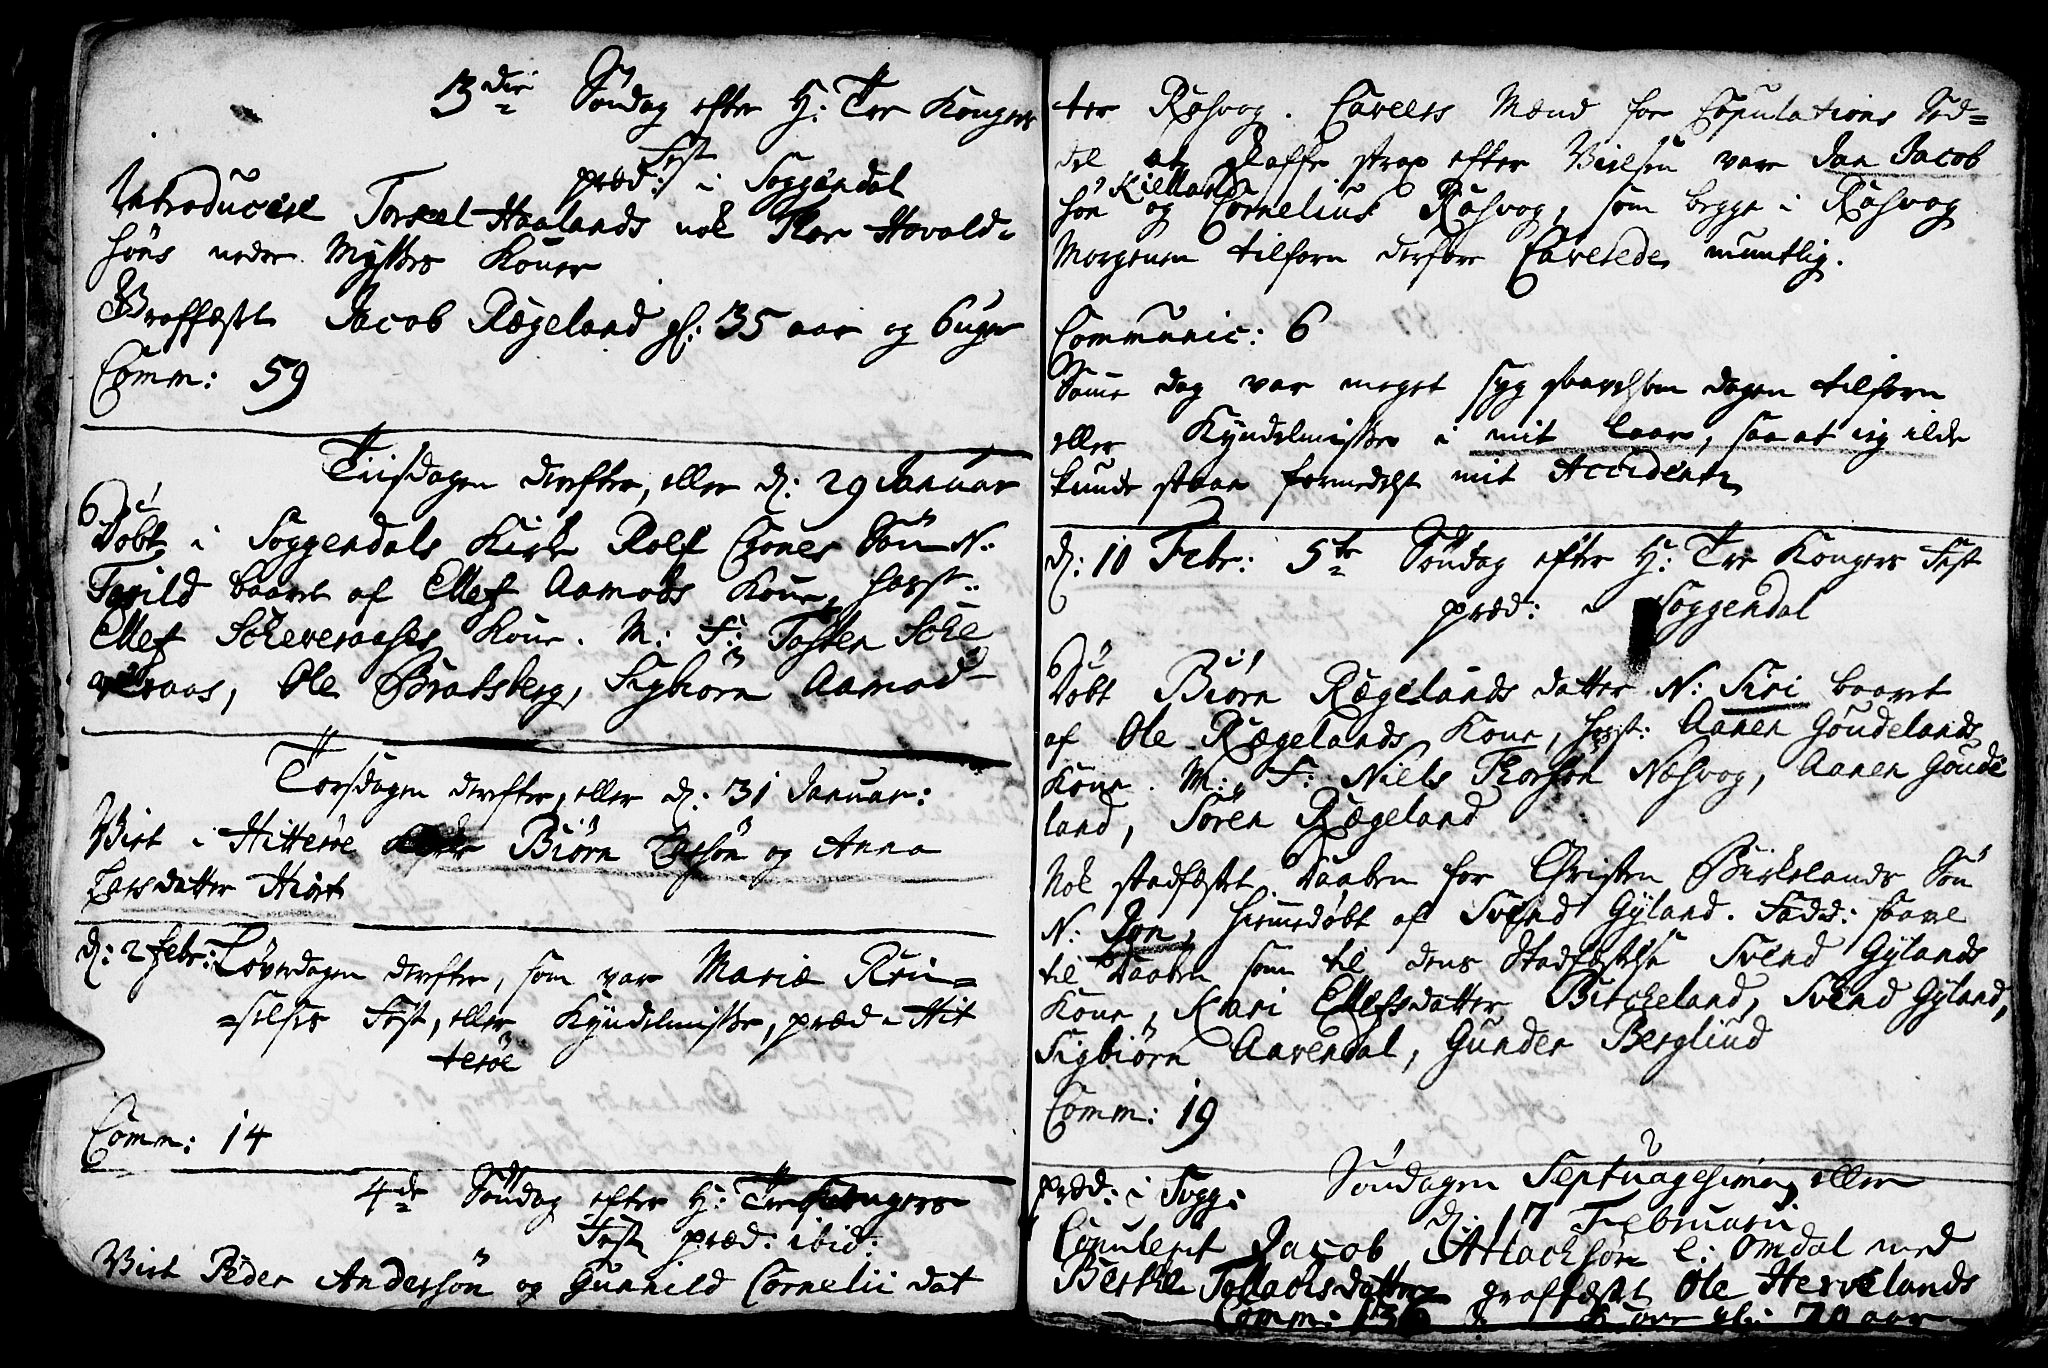 3die Søndag efter H: Tre Kongers
Fest
præd: i Soggendal
Introduceret Torkel Haalands nok Thor Hovald-
søns nedre Mysses Koner
Graffæstet Jacob Rægeland gl: 35 aar og 6 uger
Comm: 59
Tiisdagen derefter, eller d: 29 Januar
Døbt i Soggendals Kirke Rolf Søn N:
Tarild baaret af Ellef Aamods Kone, host:
Ellef Scheveraases Kone. M: F: Tosten Sche
veraas, Ole Bratsberg, Sigbiørn Aamod
Torsdagen derefter, eller d: 31 Januar:
Viet i Hitterøe Biørn og Anna
Larsdatter Hiort
d: 2 Febr: Løverdagen derefter, som var Mariæ Ren-
-selses Fest, eller Kyndelmisse, præd i Hit
terøe
Comm: 14
4de Søndag efter H: Tre Kongers
Fest præd: ibid:
Viet Peder Andersøn og Gunnild Cornelii dat
ter Rasvog. Caveers Mænd for Copulations Sed=
del at skaffe strax efter Vielsen var Jan Jacob
søn Kielland og Cornelius Rasvog, som begge i Rasvog
Morgenen tilforn derfore Caverede muntlig.
Communic: 6
Samme dag var meget syg saavelsom dagen tilforn
eller Kyndelmisse i mit Laar, saa at ieg ilde
kunde staae formedelst mit Accidente
d: 10 Febr: 5te Søndag efter H: Tre Kongers Fest
præd: i Soggendal
Døbt Biørn Rægelands datter N: Siri baaret
af Ole Rægelands Kone, host: Aanen Goudelands
Kone. M: F: Niels Thorsøn Næsvog, Aanen Goude
land, Søren Rægeland
Nok stadfæstet Daaben for Christen Birkelands Søn
N: Jon, hiemmedøbt af Svend Gyland. Fadd: saavel
til Daaben som til dens Stadfæstelse Svend Gylands
Kone, Kari Ellefsdatter Birckeland, Svend Gyland,
Sigbiørn Aavendal, Gunder Bergliud
Comm: 19
præd: i Sogg: Søndagen Septuagesima, eller
d: 17 Februarii
Copuleret Jacob Atlachsøn Omdal med
Berthe Tollachsdatter graffæstet Ole Hervelands
Comm: 136 Kone gl: 70 aar